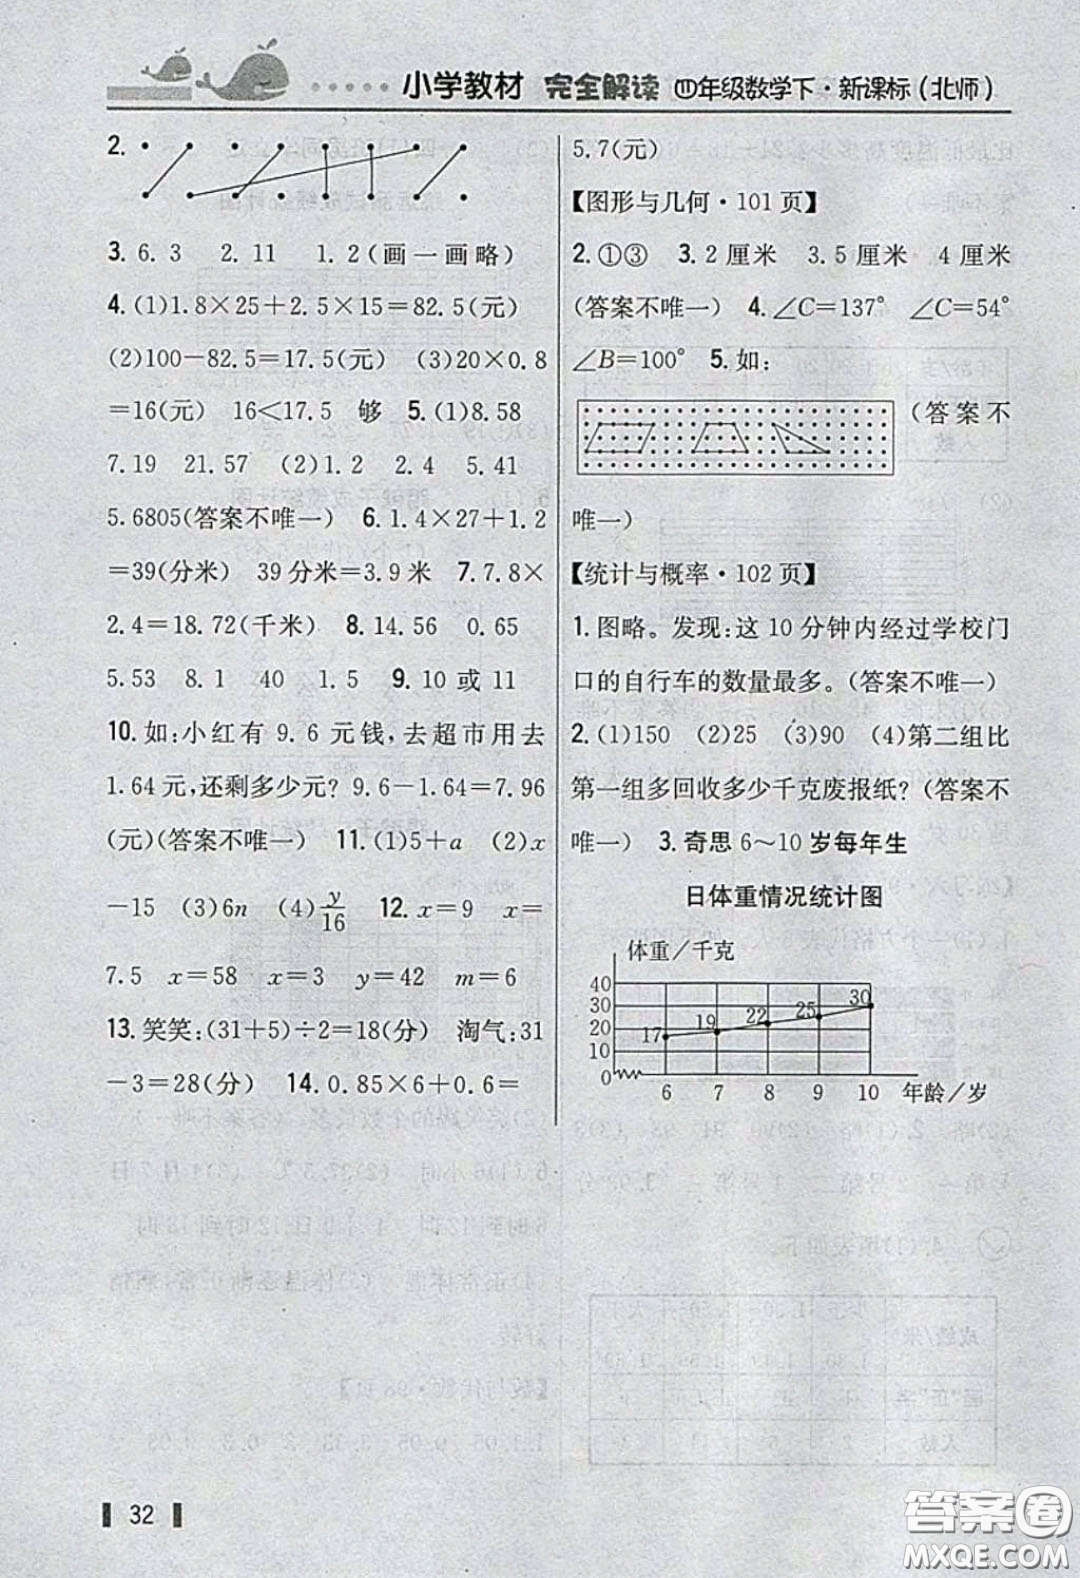 小学教材 完全解读 四年级数学下·新课标(北师)
2.
3. 6.3 2.11 1.2(画一画略)
4. (1)1.8×25+2.5×15=82.5(元)
(2)100-82.5=17.5(元) (3)20×0.8
=16(元) 16<17.5 够 5. (1)8.58
7.19 21.57 (2)1.2 2.4 5.41
5.6805(答案不唯一) 6. 1.4×27+1.2
=39(分米) 39分米=3.9米 7. 7.8×
2.4=18.72(千米) 8. 14.56 0.65
5.53 8.1 40 1.5 9. 10或11
10. 如:小红有9.6元钱,去超市用去
1.64元,还剩多少元? 9.6-1.64=7.96
(元)(答案不唯一) 11. (1)5+a (2)x
-15 (3)6n (4)y/16 12. x=9 x=
7.5 x=58 x=3 y=42 m=6
13. 笑笑:(31+5)÷2=18(分) 淘气:31
-3=28(分) 14. 0.85×6+0.6=
5.7(元)
【图形与几何·101页】
2. ①③ 3. 2厘米 3.5厘米 4厘米
(答案不唯一) 4. ∠C=137° ∠C=54°
∠B=100° 5. 如:
(答案不
唯一)
【统计与概率·102页】
1. 图略。发现:这10分钟内经过学校门
口的自行车的数量最多。(答案不唯一)
2. (1)150 (2)25 (3)90 (4)第二组比
第一组多回收多少千克废报纸?(答案不
唯一) 3. 奇思6～10岁每年生
日体重情况统计图
体重/千克
40
30
20
10
0
17 19 22 25 30
6 7 8 9 10 年龄/岁
32
答案圈
MXQE.COM